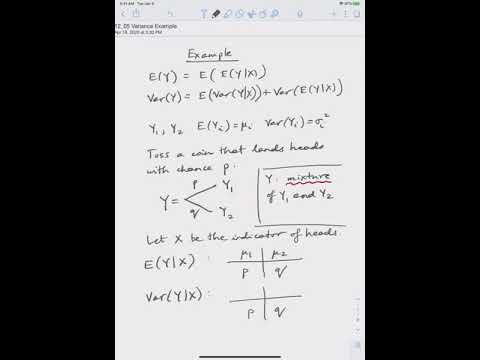 9:41 AM Tue Jan 9
12_05 Variance Example
Apr 18, 2020 at 3:30 PM
Example
E(Y) = E( E(Y|X) )
Var(Y) = E(Var(Y|X)) + Var(E(Y|X))
Y₁, Y₂ E(Yᵢ) = μᵢ Var(Yᵢ) = σᵢ²
Toss a coin that lands heads
with chance p.
Y = p Y₁
q Y₂
Y: mixture
of Y₁ and Y₂
Let X be the indicator of heads.
E(Y|X) : μ₁ μ₂
p q
Var(Y|X) :
p q